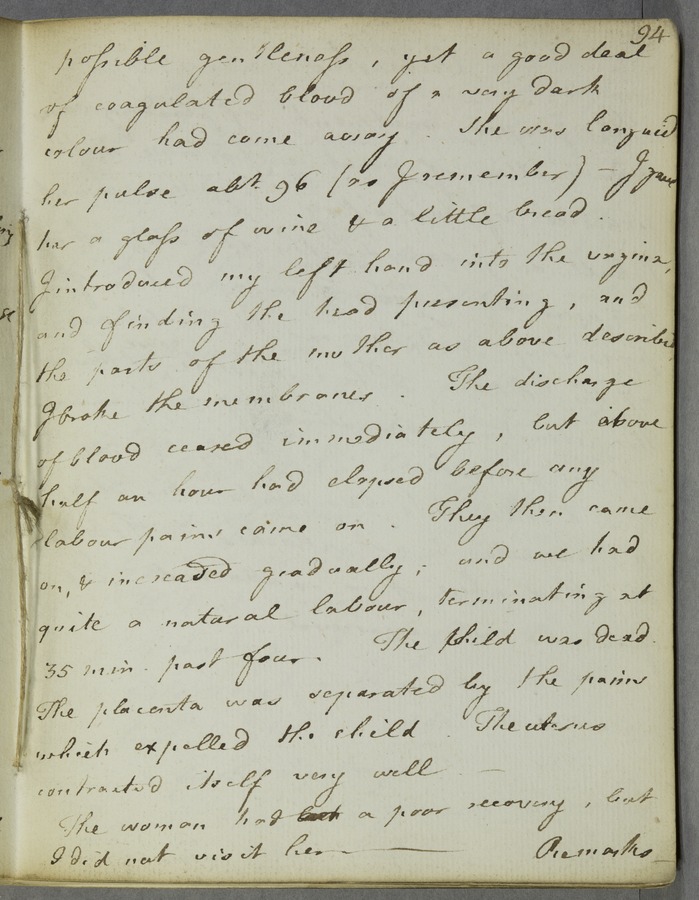 94
possible gentleness, yet a good deal
of coagulated blood of a very dark
colour had come away. She was languid
her pulse abt. 96 (as I remember) - I gave
her a glass of wine & a little bread.
I introduced my left hand into the vagina,
and finding the head presenting, and
the parts of the mother as above described
I broke the membranes. The discharge
of blood ceased immediately, but above
half an hour had elapsed before any
labour pains came on. They then came
on, & increased gradually; and we had
quite a natural labour, terminating at
35 min. past four. The child was dead.
The placenta was separated by the pains
which expelled the child. The uterus
contracted itself very well —
The woman had a poor recovery, but
I did not visit her — Remarks